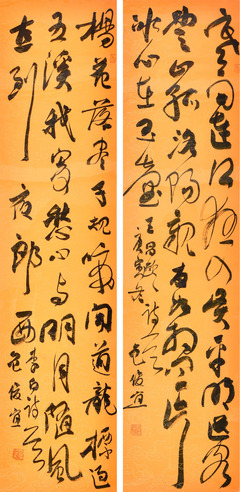 寒雨連江夜入吳平明送客
楚山孤洛陽親友如相問一片
冰心在玉壺
王昌齡
詩一首
俊宜
楊花落盡子規啼聞道龍標過
五溪我寄愁心与明月随風
直到夜郎西
李白詩一首
俊宜